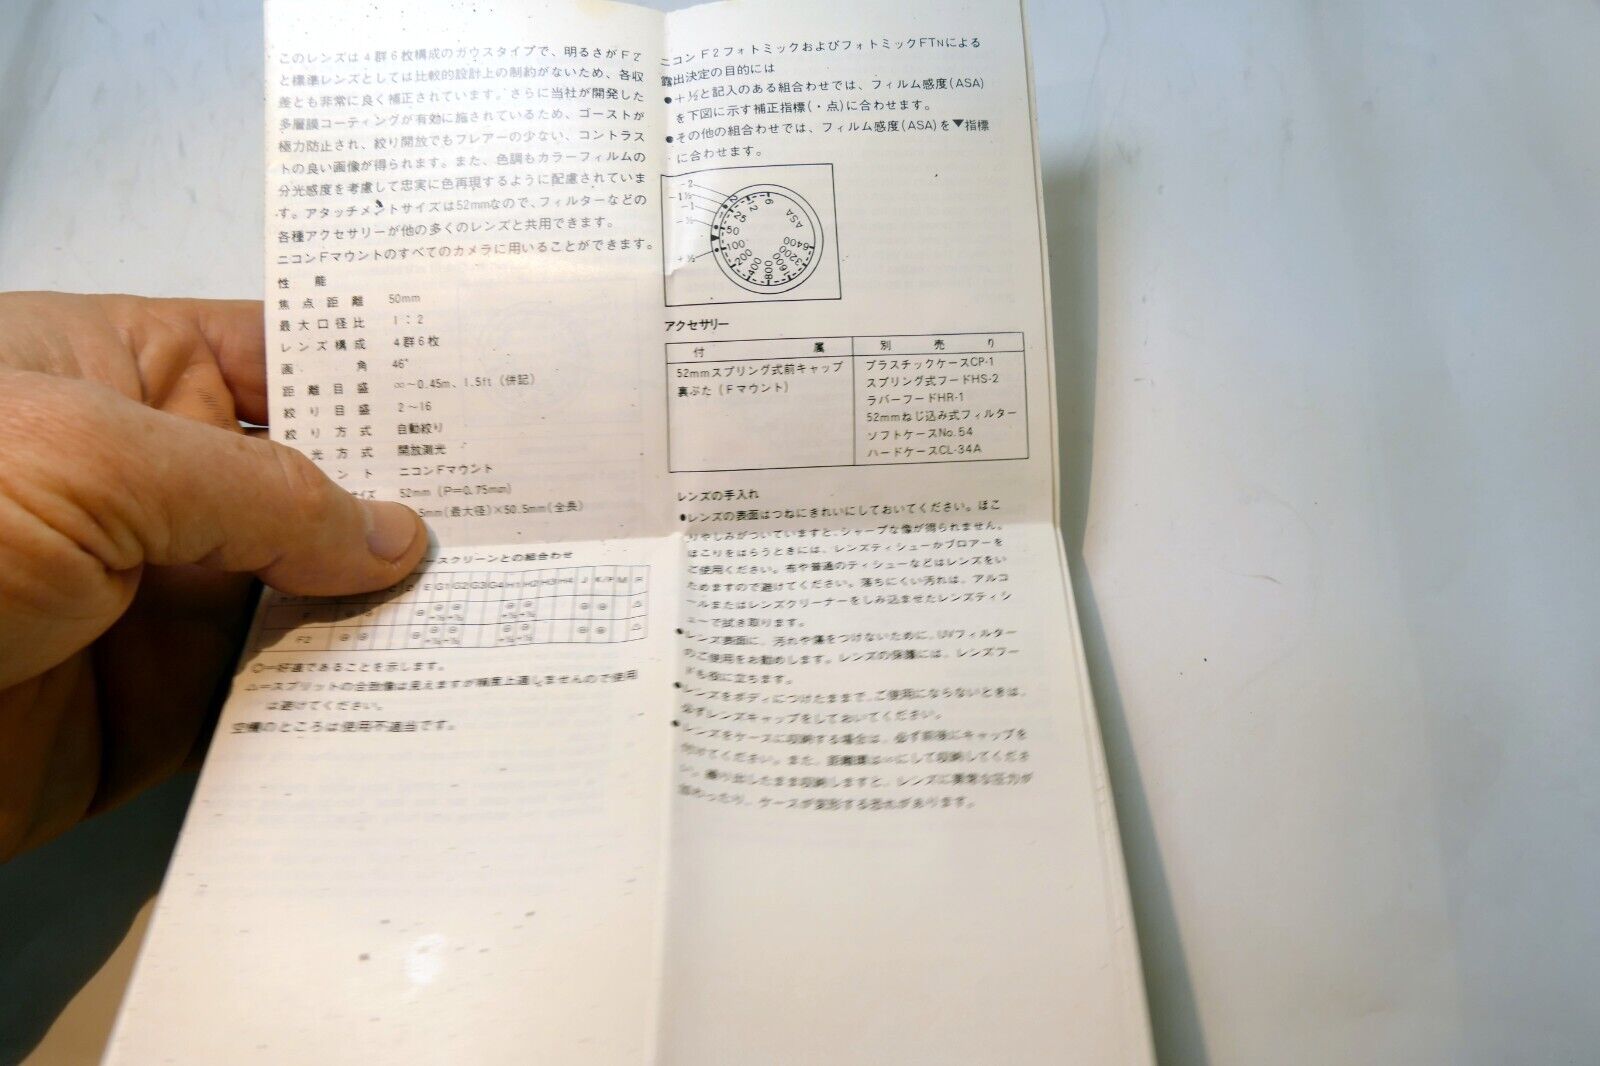 このレンズは4群6枚構成のガウスタイプで、明るさがF2
と標準レンズとしては比較的設計上の制約がないため、各収
差とも非常に良く補正されています。さらに当社が開発した
多層膜コーティングが有効に施されているため、ゴーストが
極力防止され、絞り開放でもフレアーの少ない、コントラス
トの良い画像が得られます。また、色調もカラーフィルムの
分光感度を考慮して忠実に色再現するように配慮されていま
す。アタッチメントサイズは52mmなので、フィルターなどの
各種アクセサリーが他の多くのレンズと共用できます。
ニコンFマウントのすべてのカメラに用いることができます。
性能
焦点距離 50mm
最大口径比 1:2
レンズ構成 4群6枚
画角 46°
距離目盛 ∞〜0.45m、1.5ft (併記)
絞り目盛 2〜16
絞り方式 自動絞り
光方式 開放測光
ント ニコンFマウント
イズ 52mm (P=0.75mm)
.5mm(最大径)×50.5mm(全長)
ースクリーンとの組合わせ
E G1 G2 G3 G4 H1 H2 H3 H4 J K/P M R
F
F2
◎=好適であることを示します。
△=スプリットの合致像は見えますが精度上適しませんので使用
は避けてください。
空欄のところは使用不適当です。
ニコンF2フォトミックおよびフォトミックFTNによる
露出決定の目的には
●+½と記入のある組合わせでは、フィルム感度(ASA)
を下図に示す補正指標(・点)に合わせます。
●その他の組合わせでは、フィルム感度(ASA)を▼指標
に合わせます。
-2
-1½
-1
-½
+½
ASA
6
12
25
50
100
200
400
800
1600
3200
6400
アクセサリー
付属 別売り
52mmスプリング式前キャップ プラスチックケースCP-1
裏ぶた (Fマウント) スプリング式フードHS-2
ラバーフードHR-1
52mmねじ込み式フィルター
ソフトケースNo.54
ハードケースCL-34A
レンズの手入れ
●レンズの表面はつねにきれいにしておいてください。ほこ
りやしみがついていますと、シャープな像が得られません。
ほこりをはらうときには、レンズティシューかブロアーを
ご使用ください。布や普通のティシューなどはレンズをい
ためますので避けてください。落ちにくい汚れは、アルコ
ールまたはレンズクリーナーをしみ込ませたレンズティシ
ューで拭き取ります。
●レンズ表面に、汚れや傷をつけないために、UVフィルター
のご使用をお勧めします。レンズの保護には、レンズフー
ドも役に立ちます。
●レンズをボディにつけたままで、ご使用にならないときは、
必ずレンズキャップをしておいてください。
●レンズをケースに収納する場合は、必ず前後にキャップを
付けてください。また、距離環は∞にして収納してくださ
い。繰り出したまま収納しますと、レンズに異常な圧力が
加わったり、ケースが変形する恐れがあります。